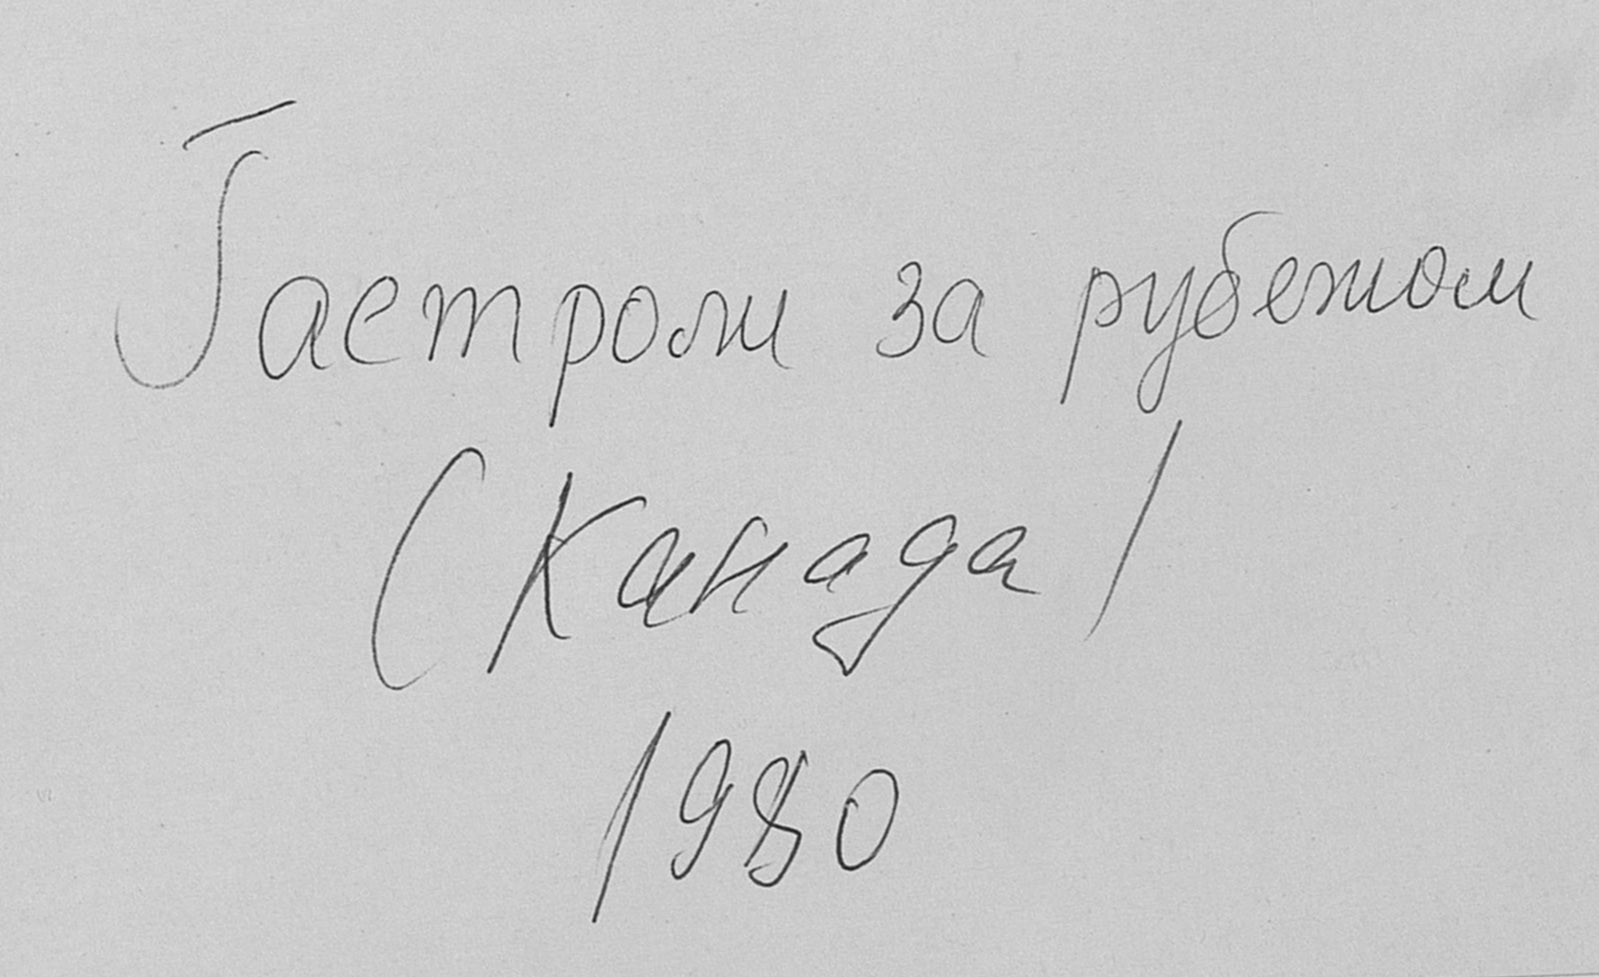 Гастроли за рубежом
(Канада)
1980